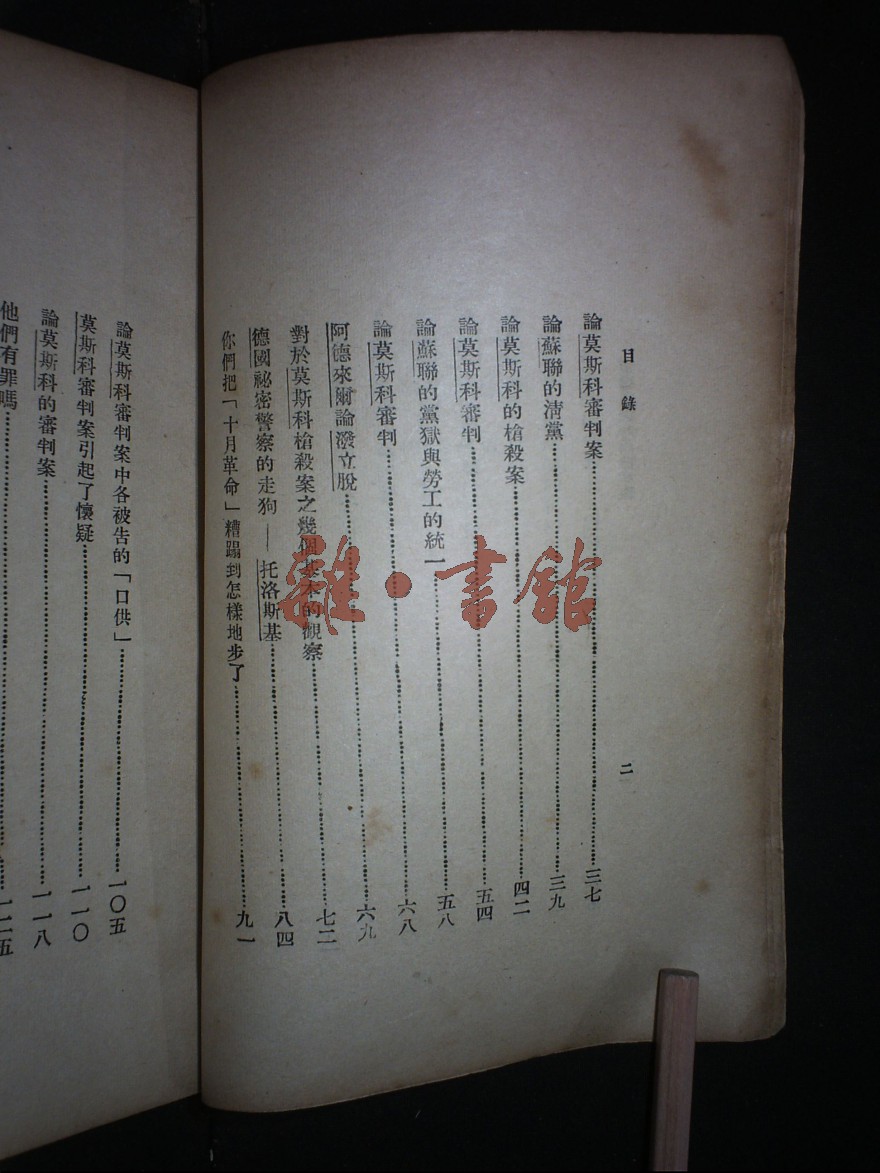 目錄 二
論莫斯科審判案……三七
論蘇聯的清黨……三九
論莫斯科的槍殺案……四二
論莫斯科審判……五四
論蘇聯的黨獄與勞工的統一……五八
論莫斯科審判……六八
阿德來爾論潑立脫……六九
對於莫斯科槍殺案之幾個基本的觀察……七二
德國祕密警察的走狗——托洛斯基……八四
你們把「十月革命」糟蹋到怎樣地步了……九一
論莫斯科審判案中各被告的「口供」……一〇五
莫斯科審判案引起了懷疑……一一〇
論莫斯科的審判案……一一八
他們有罪嗎……一二五
雜·書館